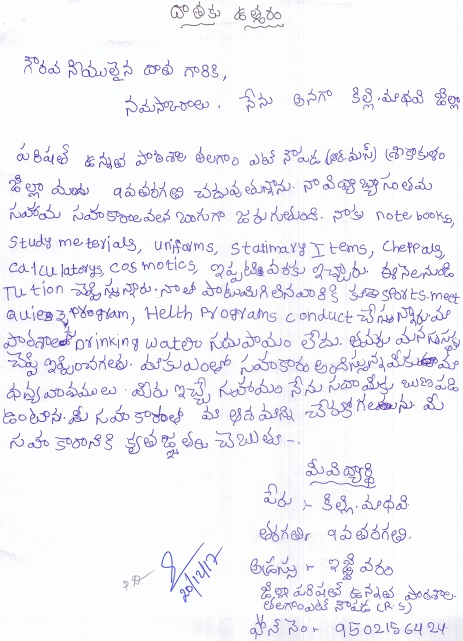 దాతకు ఉత్తరం
గౌరవ నియులైన దాత గారికి,
నమస్కారాలు. నేను అనగా కిల్లి.మాధవి జిల్లా
పరిషత్ ఉన్నత పాఠశాల తలగాం ఎట్ నౌపడ (ఆర్.యస్) శ్రీకాకుళం
జిల్లా మందు 9వతరగతి చదువుతున్నాను. నా విద్యాబ్యాసం తమ
సహాయ సహకారాలవలన బాగుగా జరుగుతుంది. నాకు notebooks,
study meterials, uniforms, Stationary Items, Cheppals,
calculatorys, cosmotics, ఇప్పటి వరకు ఇచ్చారు. ఈ నెలనుండి
Tution చెప్పిస్తున్నారు. నాతో పాటుమిగిలినవారికి కూడా sports.meet
Program, Helth Programs conduct చేస్తున్నారు మా
పాఠశాలలో Drinking water సదుపాయం లేదు. తమరు మనస్సు
చెప్పి ఇప్పించగలరు. మాకు ఎంతో సహకారం అందిస్తున్న మీకు మా
ధన్యవాదములు. మీరు ఇచ్చే సహాయం నేను సదా మీకు ఋణపడి
ఉంటాను. మీ సహకారంతో మా ఆశయాన్ని చేరుకోగలను. మీ
సహకారానికి కృతజ్ఞతలు చెబుతూ -.
మీవిద్యార్థి
పేరు :- కిల్లి.మాధవి
తరగతి:- 9వతరగతి.
అడ్రస్సు :- ఇజ్జివరం
జిల్లా పరిషత్ ఉన్నత పాఠశాల
తలగాంఎట్ నౌపడ (R.S)
ఫోన్ నెం:- 9502156424
20/12/17